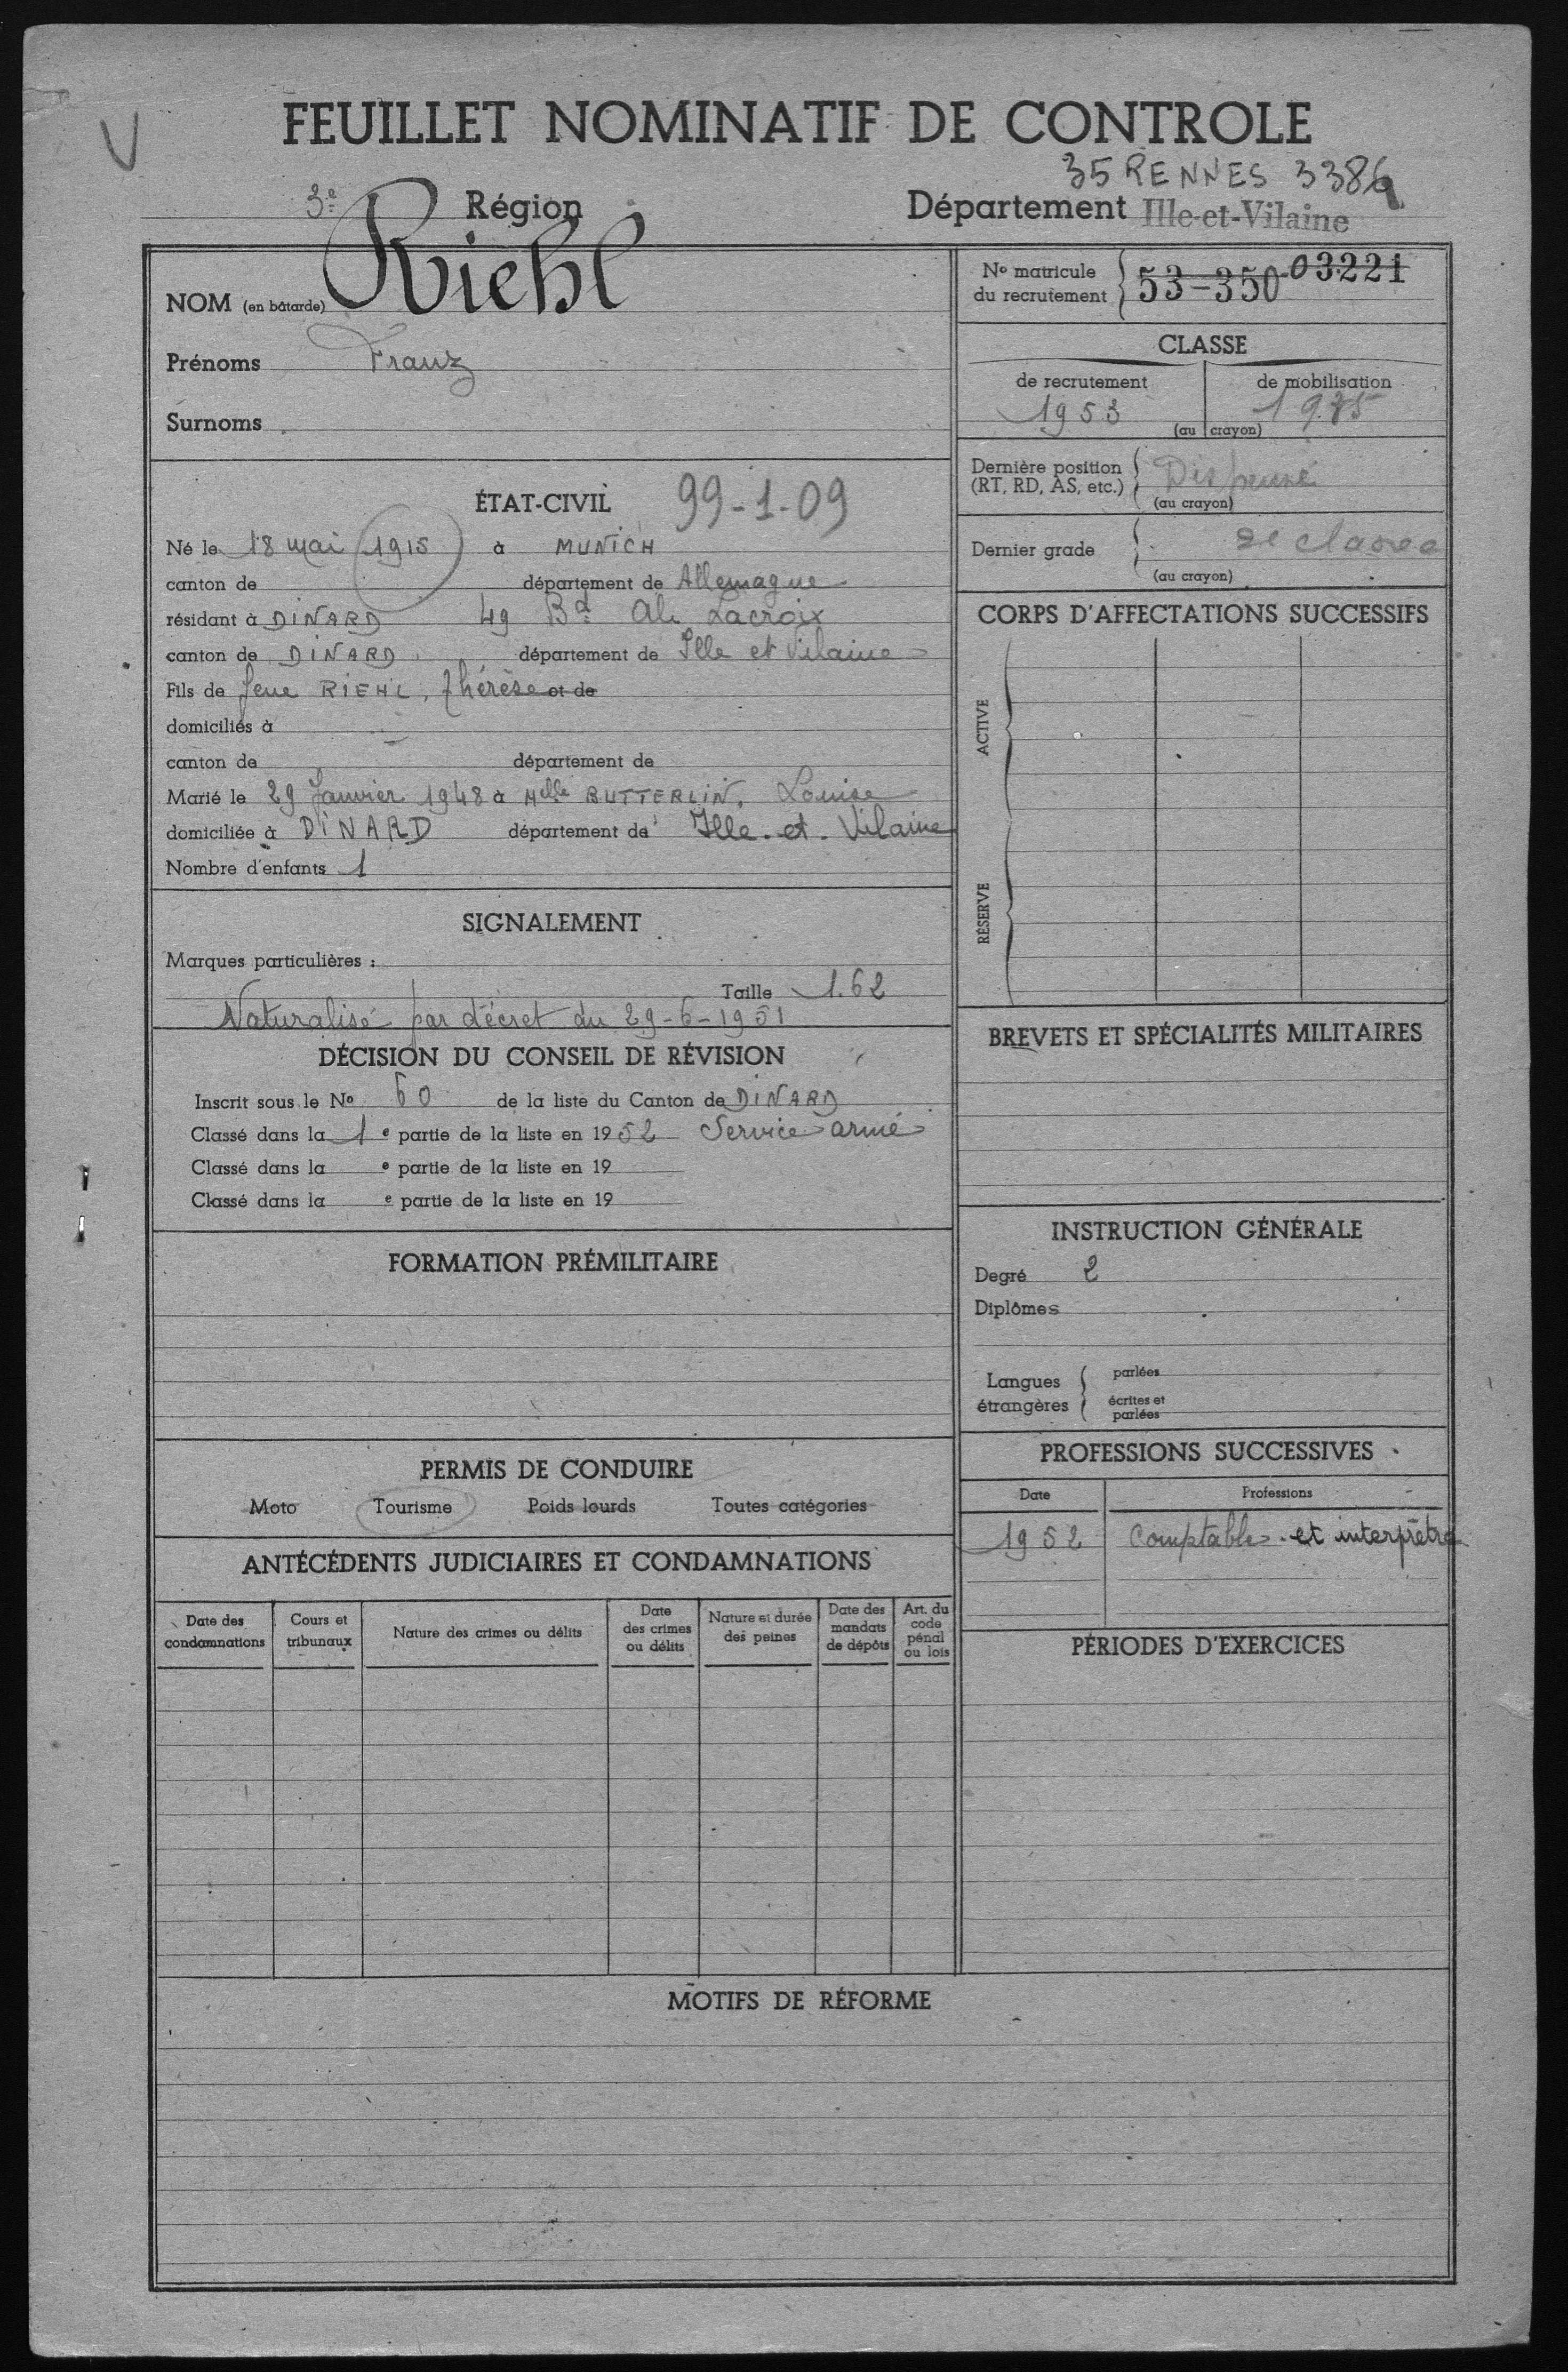 V
FEUILLET NOMINATIF DE CONTROLE
35 RENNES 3386
3e Région
Département Ille-et-Vilaine
NOM (en bâtarde) Riehl
Prénoms Franz
Surnoms
ÉTAT-CIVIL 99-1-09
Né le 18 mai 1915 à MUNICH
canton de département de Allemagne
résidant à DINARD 49 Bd Al. Lacroix
canton de DINARD département de Ille et Vilaine
Fils de feue RIEHL, Thérèse et de
domiciliés à
canton de département de
Marié le 29 Janvier 1948 à Melle BUTTERLIN, Louise
domiciliée à DINARD département de Ille-et-Vilaine
Nombre d'enfants 1
SIGNALEMENT
Marques particulières :
Taille 1.62
Naturalisé par décret du 29-6-1951
DÉCISION DU CONSEIL DE RÉVISION
Inscrit sous le No 60 de la liste du Canton de DINARD
Classé dans la 1 e partie de la liste en 1952 Service armé
Classé dans la e partie de la liste en 19
Classé dans la e partie de la liste en 19
FORMATION PRÉMILITAIRE
PERMIS DE CONDUIRE
Moto Tourisme Poids lourds Toutes catégories
ANTÉCÉDENTS JUDICIAIRES ET CONDAMNATIONS
Date des condamnations
Cours et tribunaux
Nature des crimes ou délits
Date des crimes ou délits
Nature et durée des peines
Date des mandats de dépôts
Art. du code pénal ou lois
No matricule du recrutement 53-350-03221
CLASSE
de recrutement de mobilisation
1953
(au crayon)
Dernière position (RT, RD, AS, etc.) Dispensé
(au crayon)
Dernier grade 2e classe
(au crayon)
CORPS D'AFFECTATIONS SUCCESSIFS
ACTIVE
RÉSERVE
BREVETS ET SPÉCIALITÉS MILITAIRES
INSTRUCTION GÉNÉRALE
Degré 2
Diplômes
Langues étrangères
parlées
écrites et parlées
PROFESSIONS SUCCESSIVES
Date Professions
1952 Comptable et interprètre
PÉRIODES D'EXERCICES
MOTIFS DE RÉFORME